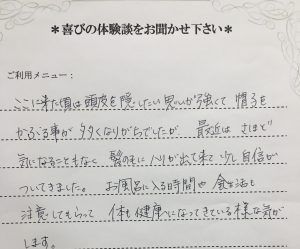 *喜びの体験談をお聞かせ下さい*
ご利用メニュー：
ここに来た頃は頭皮を隠したい思いが強くて 帽子を
かぶる事が多くなりがちでしたが 最近は さほど
気になることもなく 髪の毛にハリが出て来て少し自信が
ついてきました。 お風呂に入る時間や 食生活も
注意してもらって 体も健康になってきている様な気が
します。